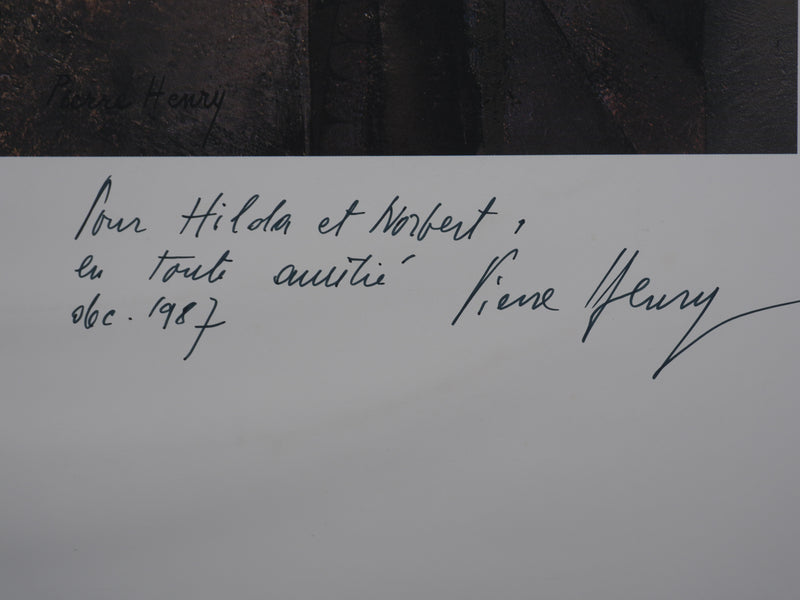 Pierre Henry
Pour Hilda et Norbert,
en toute amitié
déc. 1987
Pierre Henry